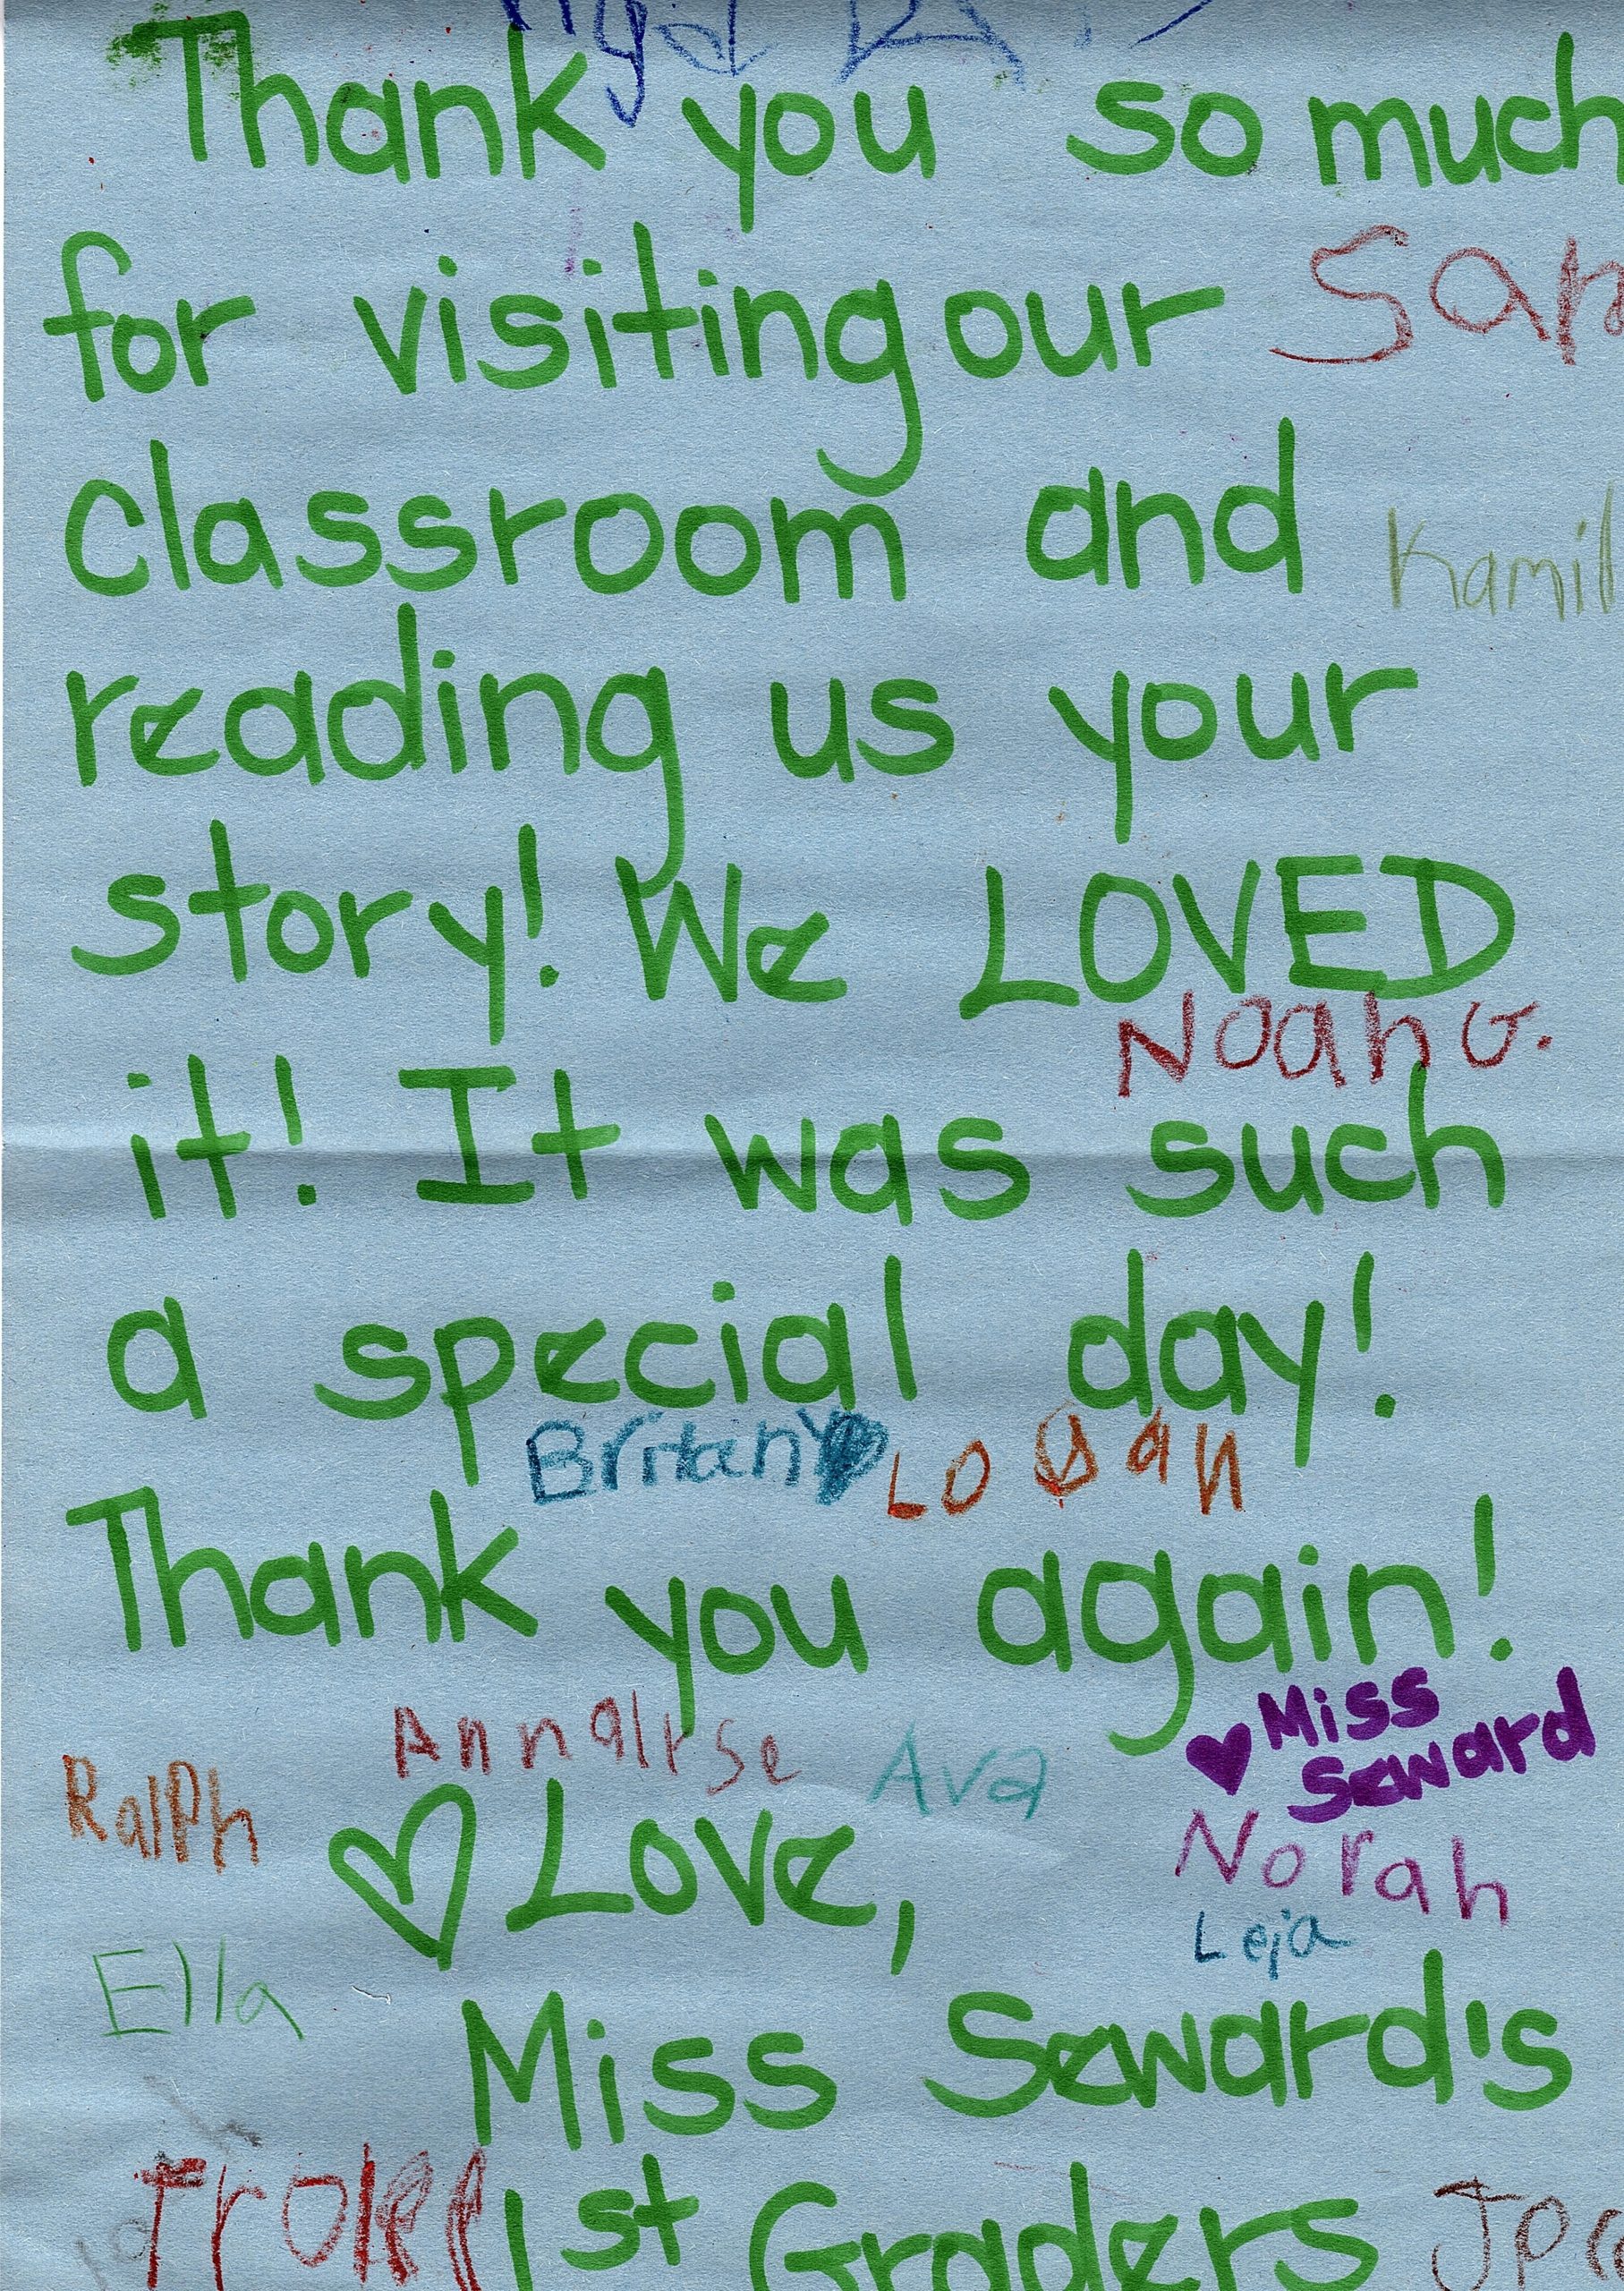 Thank you so much
for visiting our
classroom and
Kamil
reading us your
story! We LOVED
Noah G.
it! It was such
a special day!
Britany Logan
Thank you again!
♥ Miss
Seward
Annalise Ava
Ralph
Norah
♡ Love,
Leja
Ella
Miss Seward's
1st Graders